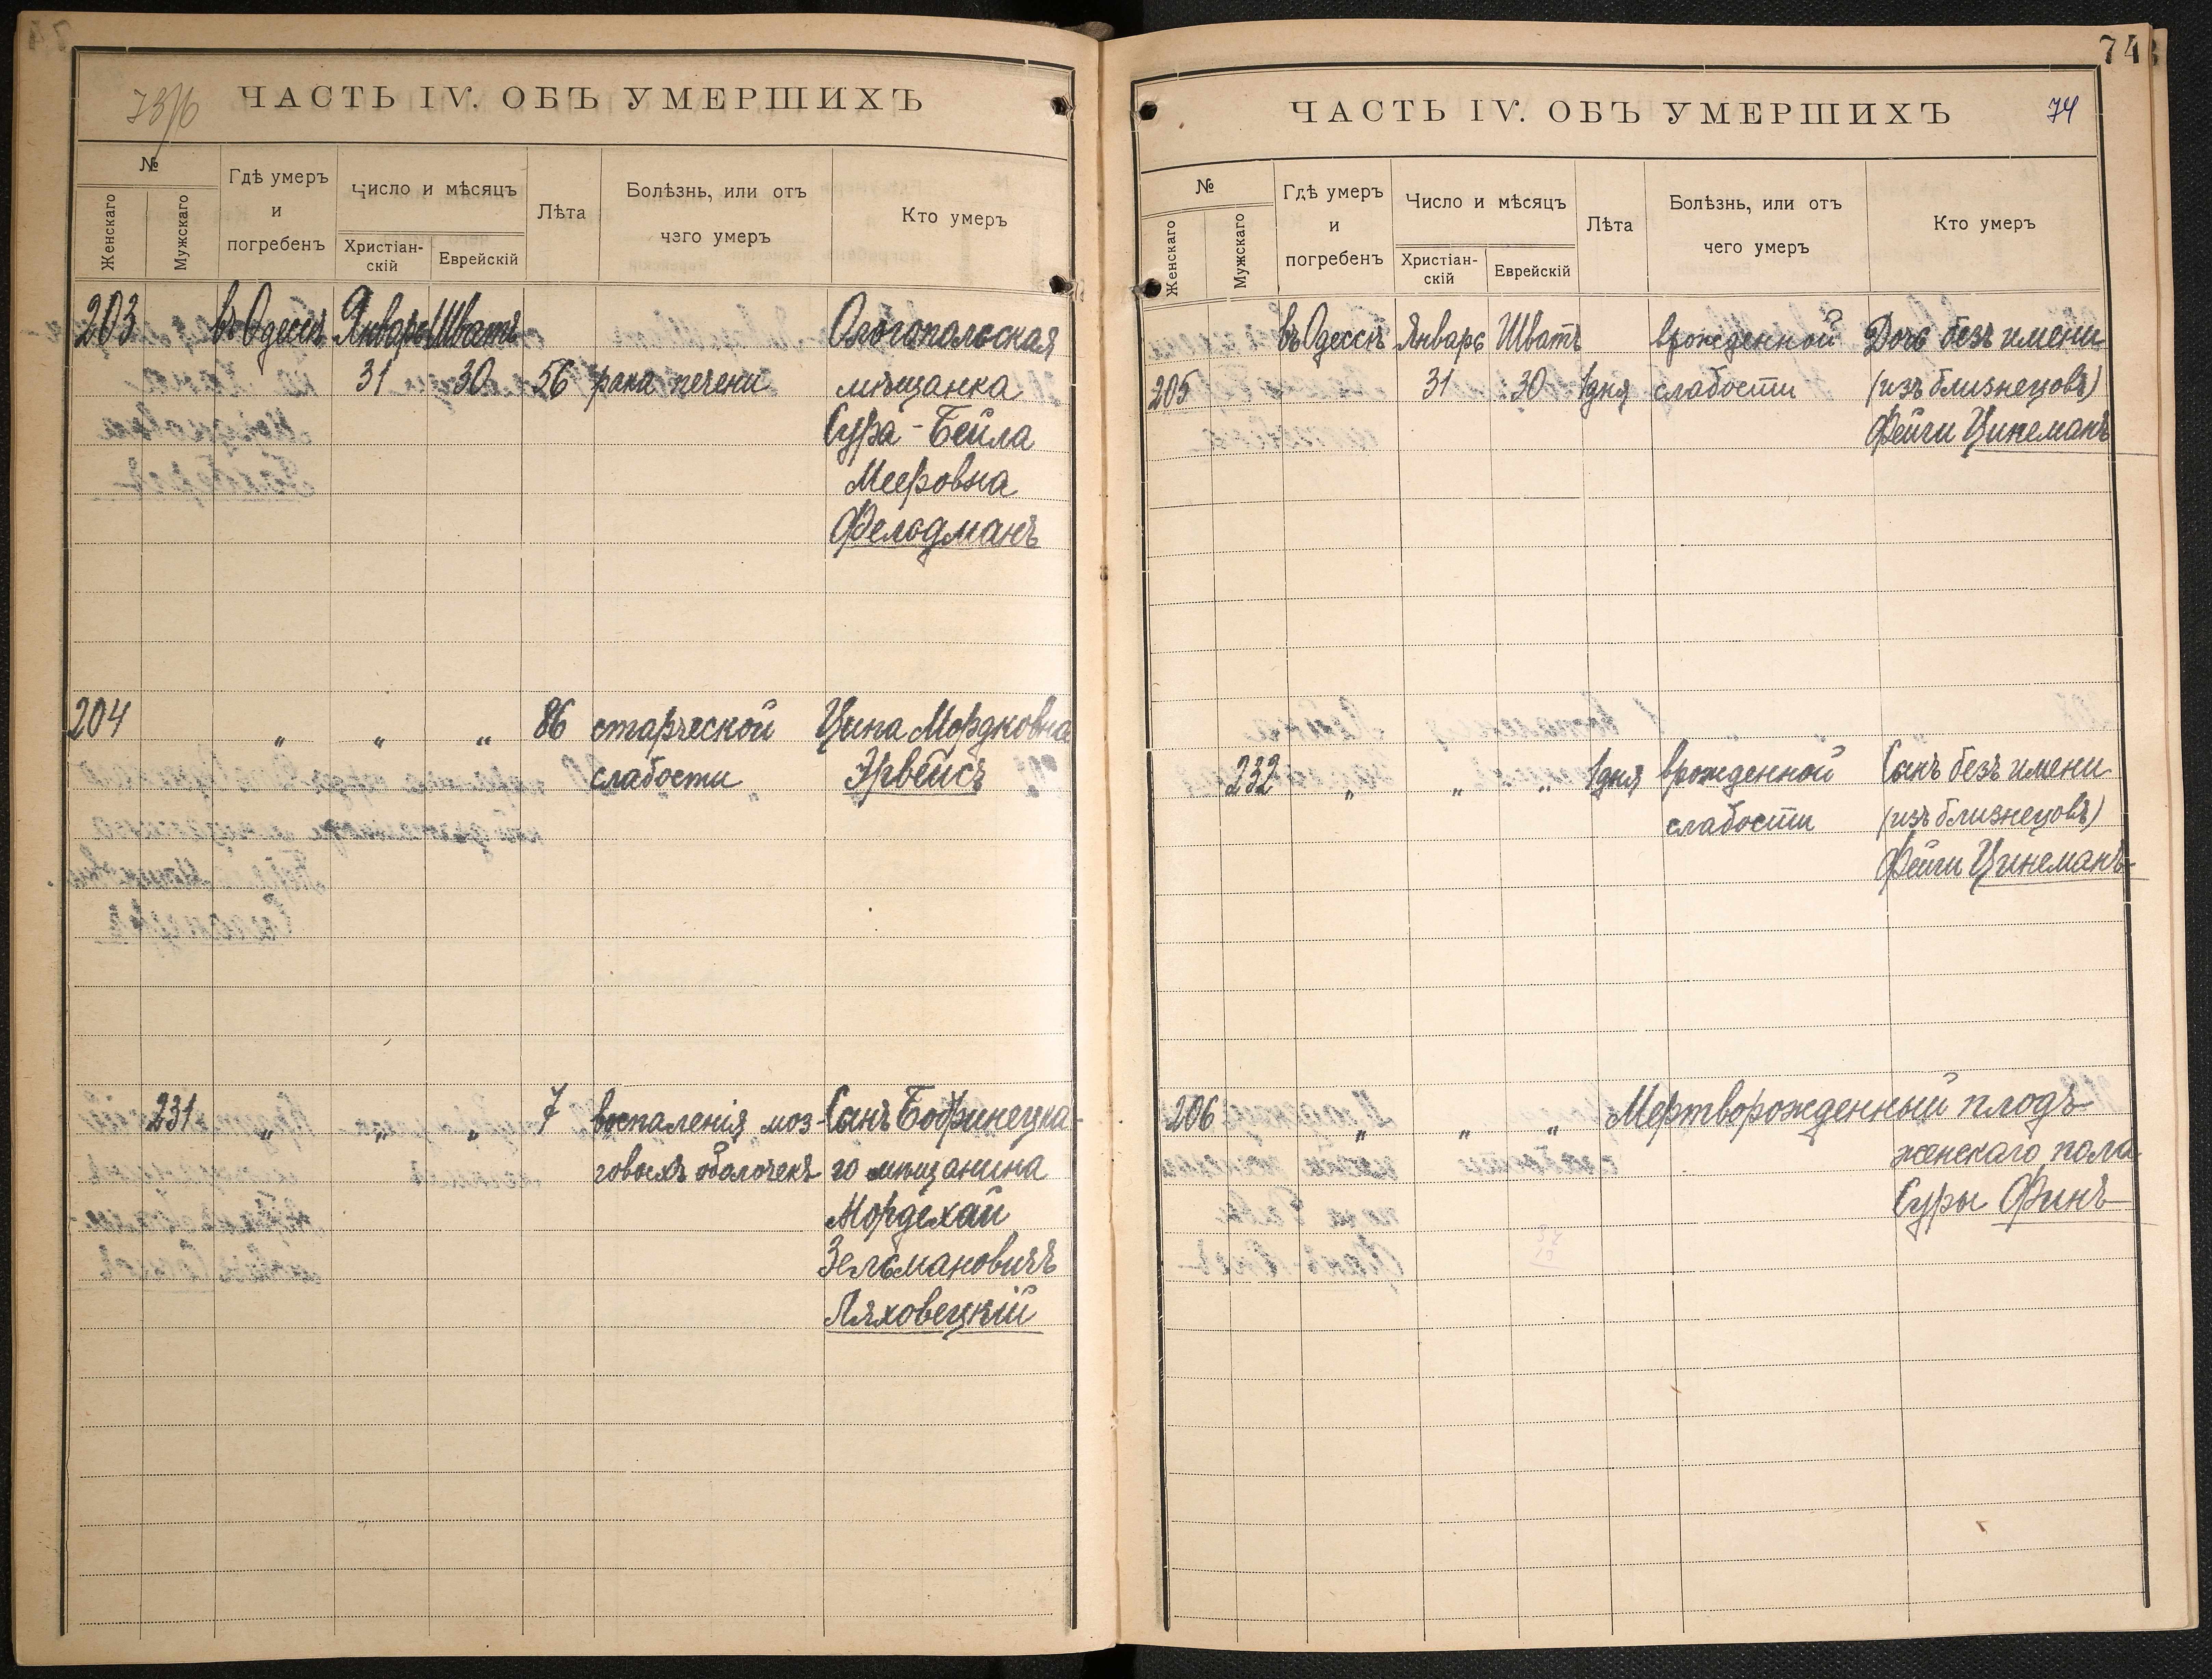 73/б
ЧАСТЬ IV. ОБЪ УМЕРШИХЪ
№
Женскаго
Мужскаго
Гдѣ умеръ
и
погребенъ
Число и мѣсяцъ
Христіан-
скій
Еврейскій
Лѣта
Болѣзнь, или отъ
чего умеръ
Кто умеръ
203 въ Одессѣ Январь Шватъ Ольгопольская
31 30 56 рака печени мѣщанка
Сура-Бейла
Мееровна
Фельдманъ
204 " " " 86 старческой Цына Мордковна
слабости Эрвейсъ
231 " " " 7 воспаленія моз- Сынъ Бобринецка-
говыхъ оболочекъ го мѣщанина
Мордехай
Зельмановичъ
Ляховецкій
74
ЧАСТЬ IV. ОБЪ УМЕРШИХЪ 74
№
Женскаго
Мужскаго
Гдѣ умеръ
и
погребенъ
Число и мѣсяцъ
Христіан-
скій
Еврейскій
Лѣта
Болѣзнь, или отъ
чего умеръ
Кто умеръ
въ Одессѣ Январь Шватъ врожденной Дочь безъ имени
205 31 30 1 дня слабости (изъ близнецовъ)
Фейги Цинеманъ
232 " " " 1 дня врожденной Сынъ безъ имени
слабости (изъ близнецовъ)
Фейги Цинеманъ
206 " " " Мертворожденный плодъ
женскаго пола
Суры Финъ